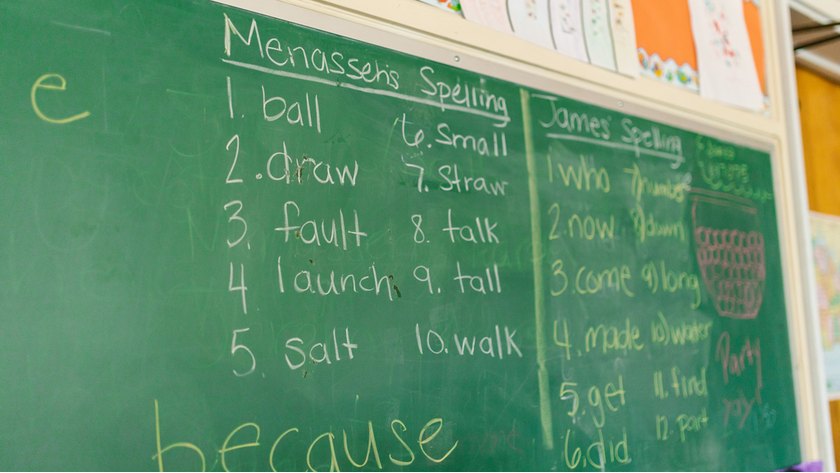 e
Menasseh's Spelling
1. ball
2. draw
3. fault
4. launch
5. salt
6. small
7. straw
8. talk
9. tall
10. walk
because
James' Spelling
1 who
2. now
3. come
4. made
5. get
6. did
7) number
8) down
9) long
10) water
11. find
12. part
Party